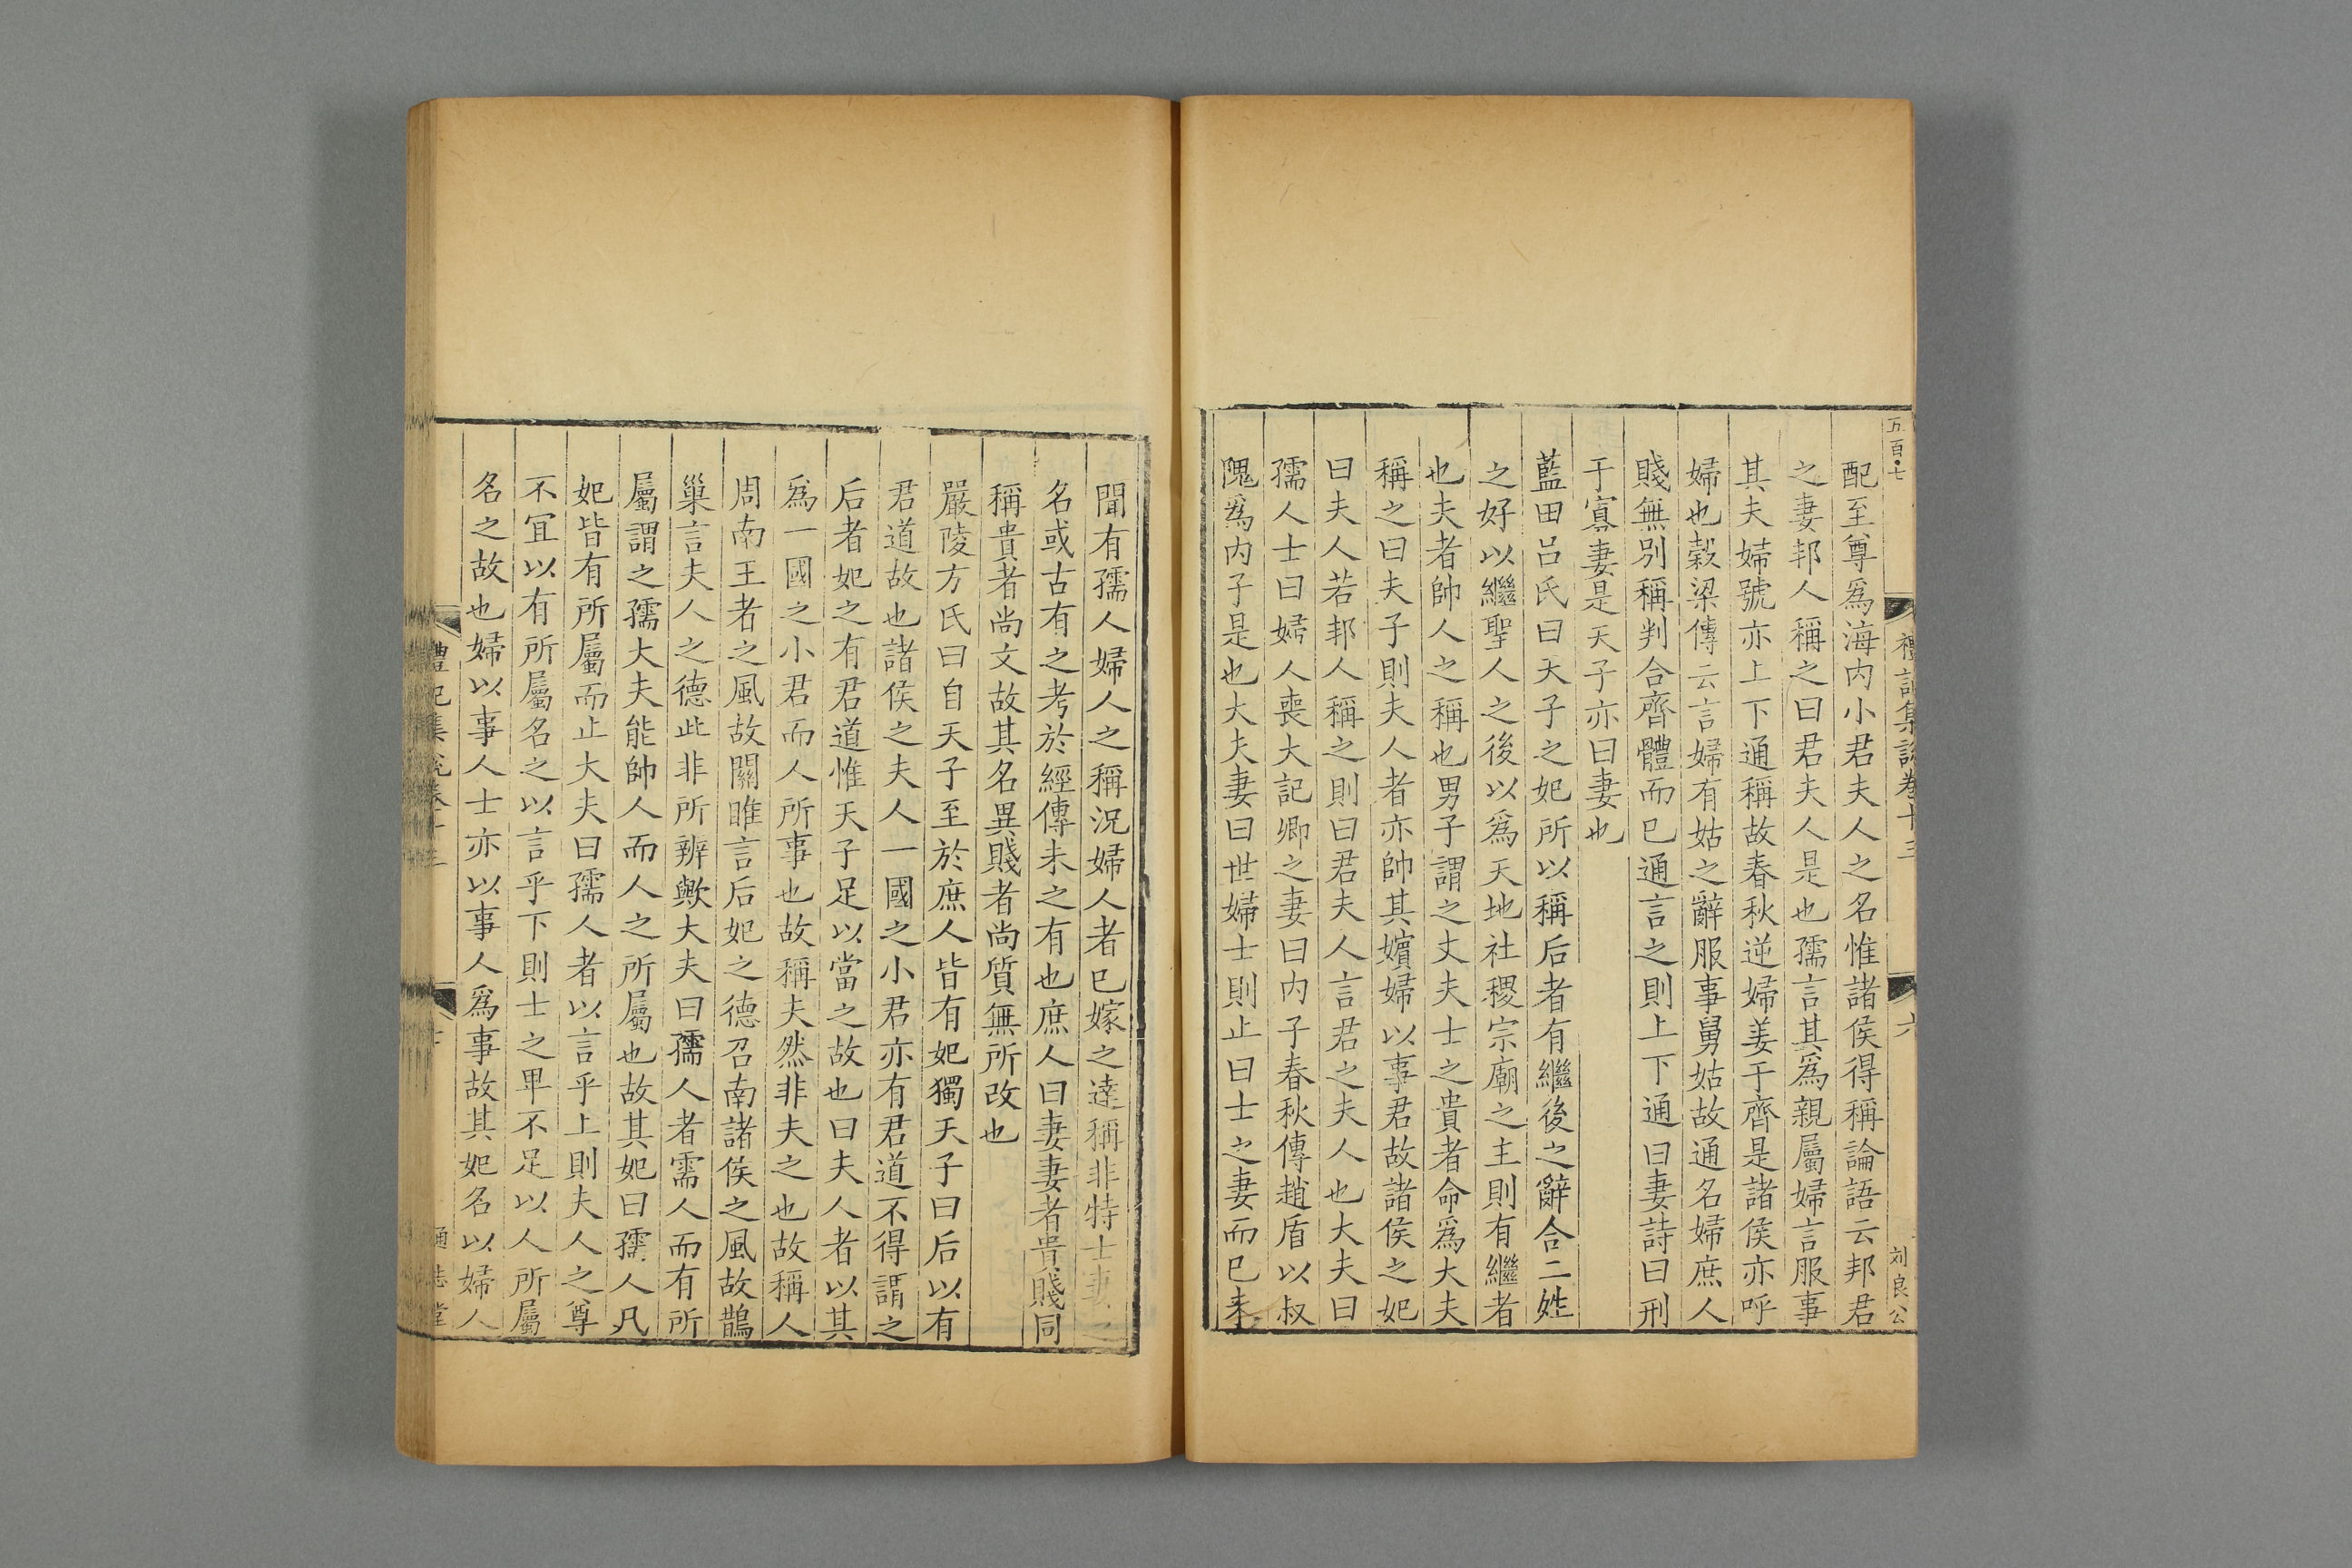 五百七
禮記集說卷十三
六
刘良公
配至尊爲海内小君夫人之名惟諸侯得稱論語云邦君
之妻邦人稱之曰君夫人是也孺言其爲親屬婦言服事
其夫婦號亦上下通稱故春秋逆婦姜于齊是諸侯亦呼
婦也榖梁傳云言婦有姑之辭服事舅姑故通名婦庶人
賤無別稱判合齊體而巳通言之則上下通曰妻詩曰刑
于寡妻是天子亦曰妻也
藍田吕氏曰天子之妃所以稱后者有繼後之辭合二姓
之好以繼聖人之後以爲天地社稷宗廟之主則有繼者
也夫者帥人之稱也男子謂之丈夫士之貴者命爲大夫
稱之曰夫子則夫人者亦帥其嬪婦以事君故諸侯之妃
曰夫人若邦人稱之則曰君夫人言君之夫人也大夫曰
孺人士曰婦人喪大記卿之妻曰内子春秋傳趙盾以叔
隗爲内子是也大夫妻曰世婦士則止曰士之妻而巳未
聞有孺人婦人之稱況婦人者巳嫁之達稱非特士妻之
名或古有之考於經傳未之有也庶人曰妻妻者貴賤同
稱貴者尚文故其名異賤者尚質無所改也
嚴陵方氏曰自天子至於庶人皆有妃獨天子曰后以有
君道故也諸侯之夫人一國之小君亦有君道不得謂之
后者妃之有君道惟天子足以當之故也曰夫人者以其
爲一國之小君而人所事也故稱夫然非夫之也故稱人
周南王者之風故關雎言后妃之德召南諸侯之風故鵲
巢言夫人之德此非所辨歟大夫曰孺人者需人而有所
屬謂之孺大夫能帥人而人之所屬也故其妃曰孺人凡
妃皆有所屬而止大夫曰孺人者以言乎上則夫人之尊
不宜以有所屬名之以言乎下則士之畢不足以人所屬
名之故也婦以事人士亦以事人爲事故其妃名以婦人
禮記集說卷十三
通志堂